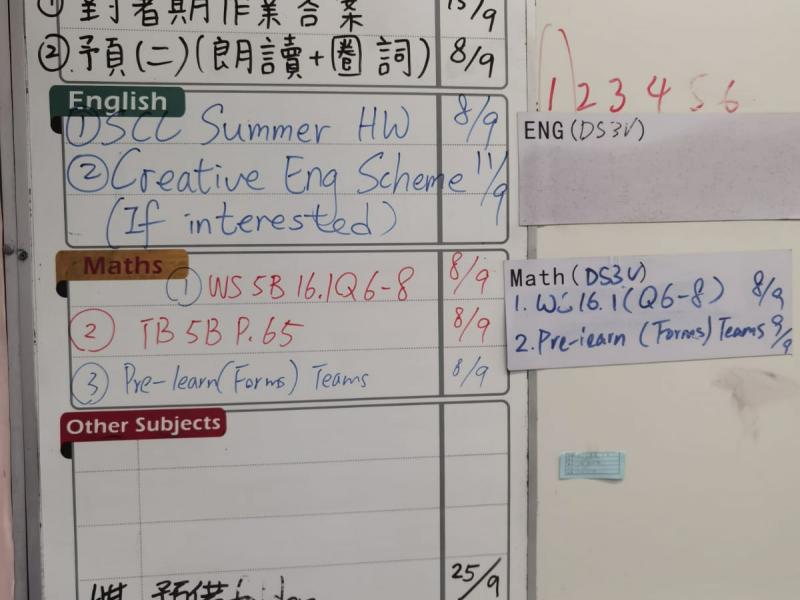 ① 對者期作業答案 15/9
② 預(二)(朗讀+圈詞) 8/9
English
① SCC Summer HW 8/9
② Creative Eng Scheme 11/9
(If interested)
Maths
① WS 5B 16.1Q6-8 8/9
② TB 5B P.65 8/9
③ Pre-learn(Forms) Teams 8/9
Other Subjects
25/9
1 2 3 4 5 6
ENG(DS3V)
Math(DS3V)
1. WS 16.1(Q6-8) 8/9
2. Pre-learn (Forms) Teams 9/9